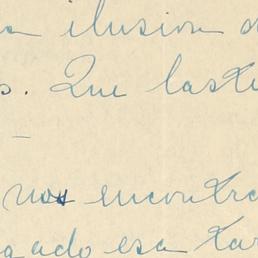 a ilusion d
s. Que laste
—
nos encontra
gado esa tar